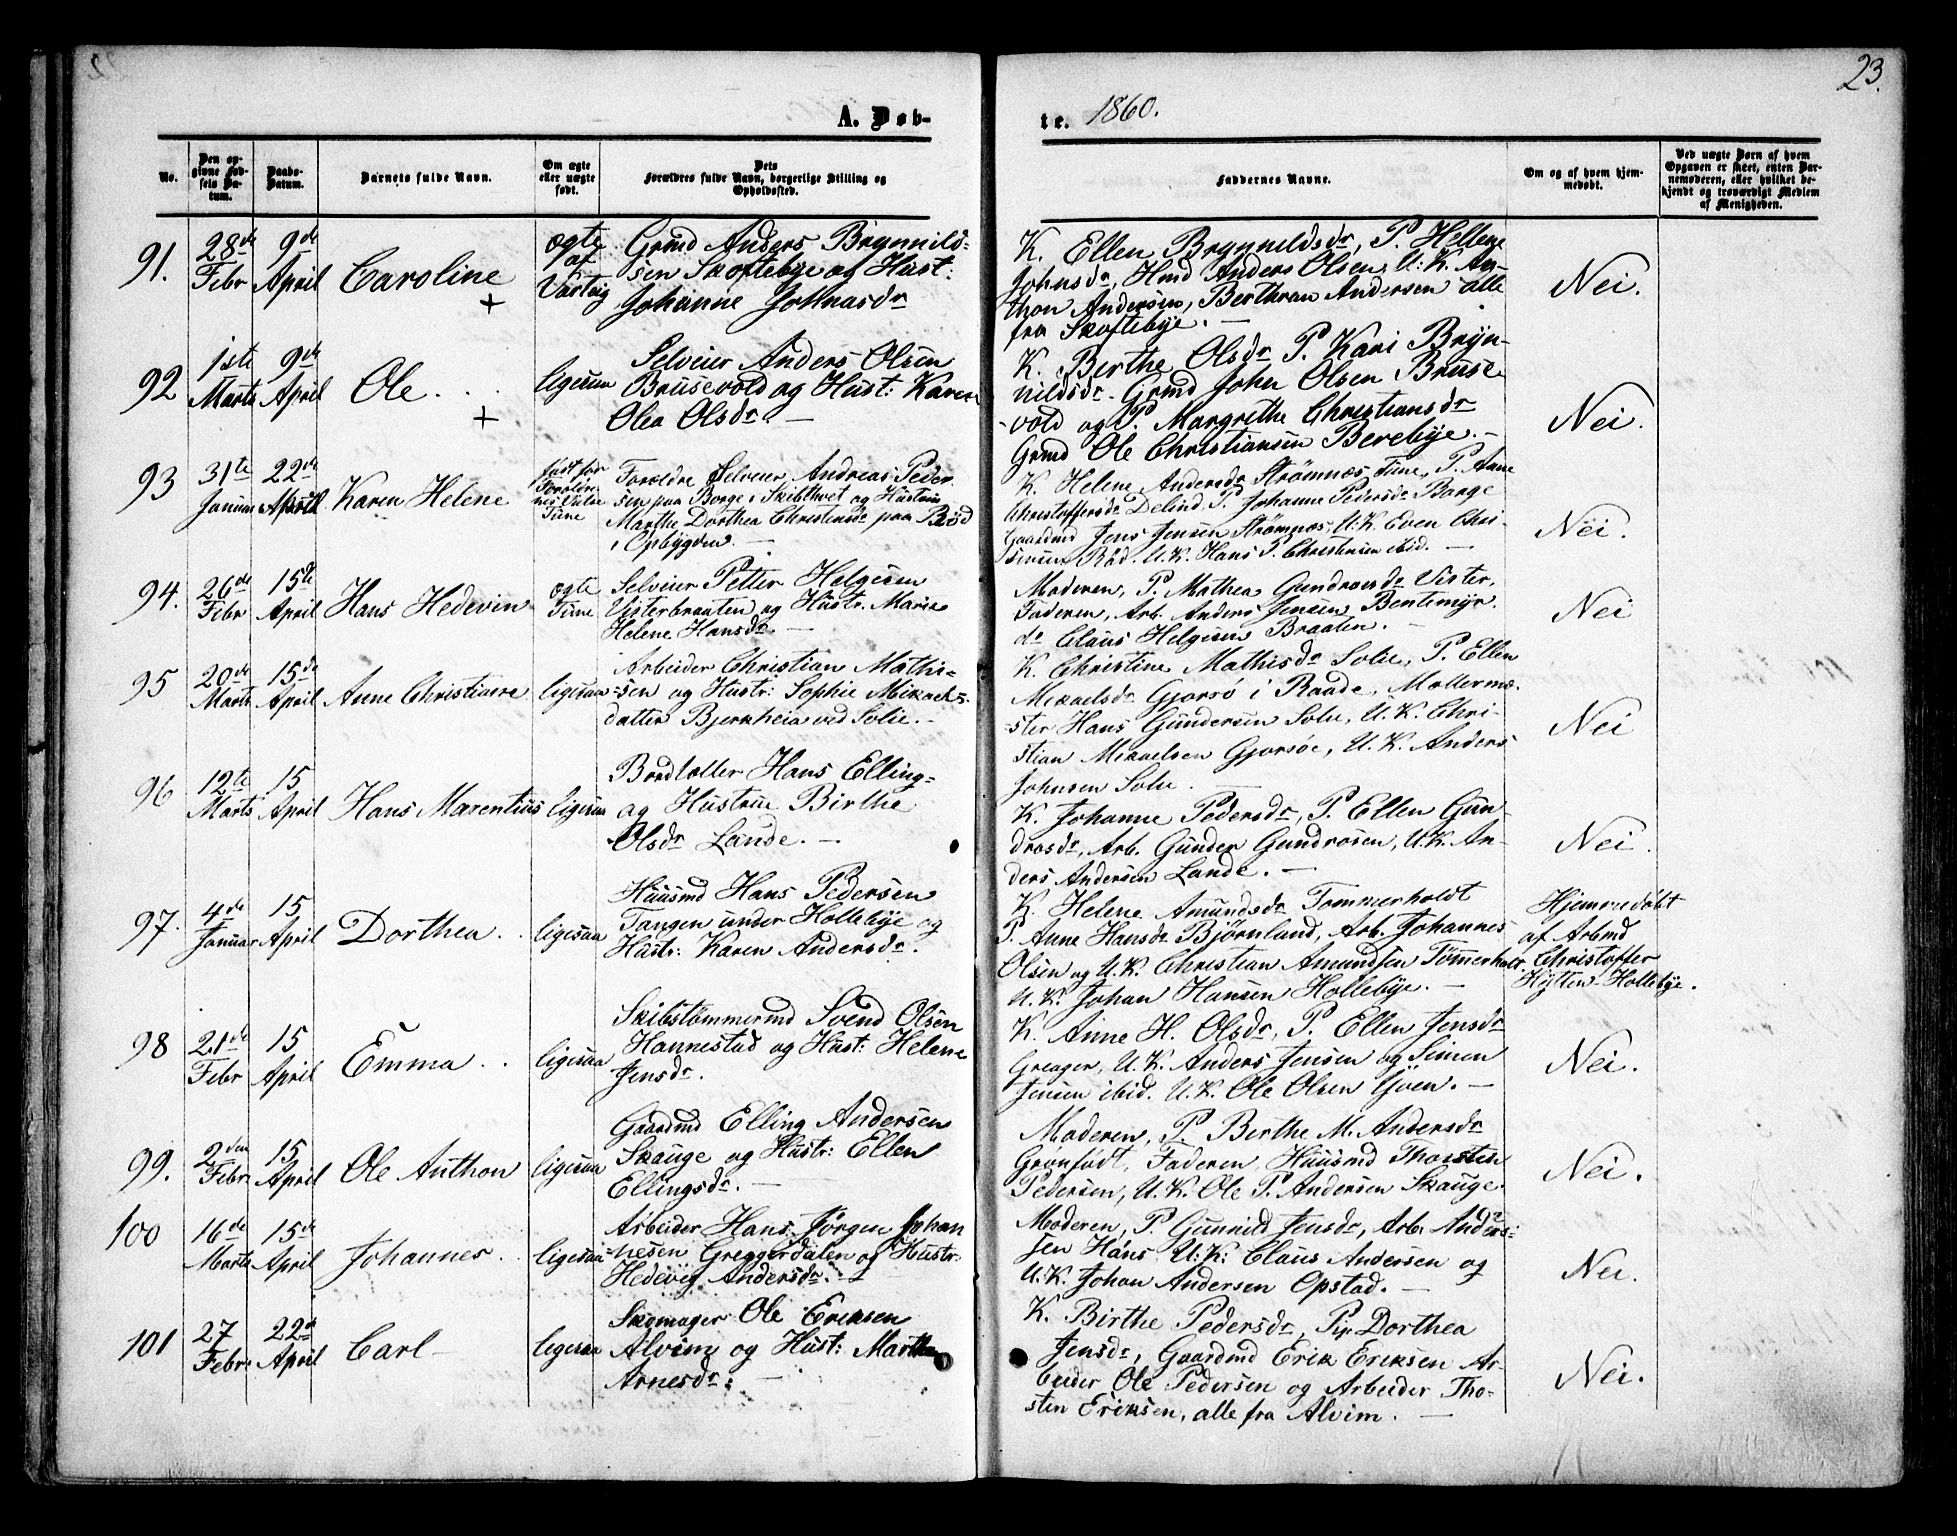 23.
A. Døb-
te. 1860.
No.
Den op-
givne Fød-
sels Da-
tum.
Daabs-
Datum.
Barnets fulde Navn.
Om ægte
eller uægte
født.
Dets
Forældres fulde Navn, borgerlige Stilling og
Opholdssted.
Faddernes Navne.
Om og af hvem hjem-
medøbt.
Ved uægte Børn af hvem
Opgaven er skeet, enten Bar-
nemoderen, eller hvilket be-
kjendt og troværdigt Medlem
af Menigheden.
91.
28de
Febr
9de
April
Caroline
+
ægte
af
Varteig
Grmd Anders Brynnild-
sen Skoftebye og Hust:
Johanne Johnasdr
K. Ellen Brynnildsdr, P. Hellene
Johnsdr, Hmd Anders Olsen, U. K. An-
thon Andersen, Berthran Andersen alle
fra Skoftebye. -
Nei.
92
1ste
Marts
9de
April
Ole.
+
ligesaa
Selveier Anders Olsen
Brusevold og Hust: Karen
Olea Olsdr. -
K. Berthe Olsdr P. Kari Bryn-
nildsdr. Grmd John Olsen Bruse
-vold og P. Margrethe Christiansdr
Grmd Ole Christiansen Berebye. -
Nei.
93
31te
Januar
22de
April
Karen Helene
født for
Foreldre-
nes
Tune
Foreldre Selveier Andreas Peder
sen paa Borge i Skibthvet og Hustru
Marthe Dorthea Christensdr paa Rød
i Opbygden. -
K. Helene Andersdr Strømnæs Tune, P. Anne
Christoffersdr Delind. P. Johanne Pedersdr Borge
Gaardmd Jens Jensen Strømnæs, U. K. Even Chri-
stensen Rød. U. K. Hans P. Christensen ibid. -
Nei.
94.
26de
Febr
15de
April
Hans Hedevin
ægte
Tune
Selveier Petter Helgesen
Visterbraaten og Hustr. Maria
Helene Hansdr. -
Moderen, P. Mathea Gundrosdr Vister,
Faderen, Arb. Anders Jensen Bentemyr.
do Claus Helgesen Braaten. -
Nei
95
20de
Marts
15de
April
Anne Christianne
ligesaa
Arbeider Christian Mathi-
-sen og Hustr: Sophie Mikaels-
datter Bjerkheia ved Solie. -
K. Christine Mathisdr Solie, P. Ellen
Mikaelsdr Gjorsø i Raade, Mollerme-
ster Hans Gundersen Solie, U. K. Chri-
stian Mikaelsen Gjorsøe, U. K. Anders
Johnsen Solie.
Nei
96
12te
Marts
15
April
Hans Marentius
ligesaa
Bordtoller Hans Elling-
og Hustrue Birthe
Olsdr Lande. -
K. Johanne Pedersdr, P. Ellen Gun
drosdr, Arb. Gunder Gundrosen, U. K. An-
ders Andersen Lande. -
Nei.
97.
4de
Januar
15
April
Dorthea.
ligesaa
Huusmd Hans Pedersen
Tangen under Hollebye og
Hustr: Karen Andersdr.
K. Helene Amundsdr Tommerholdt
P. Anne Hansdr Bjørnland, Arb. Johannes
Olsen og U. K. Christian Amundsen Tømmerholt.
U. K. Johan Hansen Hollebye. -
Hjemmedøbt
af Arbmd
Christoffer
Hytten Hollebye.
98
21de
Febr
15
April
Emma
ligesaa
Skibstømmermd Svend Olsen
Hannestad og Hust: Helene
Jensdr.
K. Anne H. Olsdr, P. Ellen Jensdr
Greager, U. K. Anders Jensen og Simen
Jensen ibid. U. K. Ole Olsen Ijven. -
Nei.
99.
2den
Febr
15
April
Ole Anthon
ligesaa
Gaardmd Elling Andersen
Skauge og Hustr: Ellen
Ellingsdr. -
Moderen, P. Berthe M. Andersdr
Grønfødt, Faderen, Huusmd Thorsten
Pedersen, U. K. Ole P. Andersen Skauge.
Nei.
100
16de
Marts
15de
April
Johannes.
ligesaa
Arbeider Hans Jørgen Johan
-nesen Greggerdalen og Hustr:
Hedevig Andersdr. -
Moderen, P. Gunnild Jensdr, Arb. Anders-
sen Hans U. K: Claus Andersen og
U. K. Johan Andersen Opstad. -
Nei.
101
27
Febr
22de
April
Carl
ligesaa
Skomager Ole Eriksen
Alvim og Hust: Marthe
Arnesdr. -
K. Birthe Pedersdr, Pip. Dorthea
Jensdr, Gaardmd Erik Eriksen Ar-
beider Ole Pedersen og Arbeider Tho-
sten Eriksen, alle fra Alvim. -
Nei.